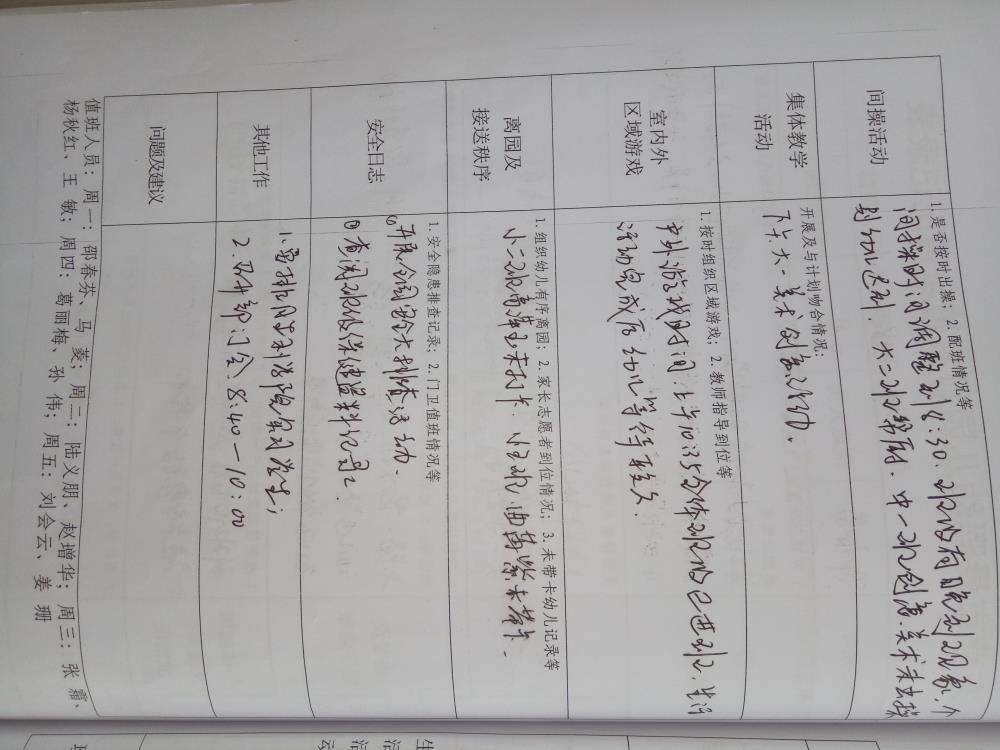 间操活动
1. 是否按时出操；2. 配班情况等
间操时间调整到8:30. 班内有晚到现象，个
别幼儿迟到. 大二班 中一班创意美术未出操
集体教学
活动
开展及与计划吻合情况：
下午大一美术创意活动.
室内外
区域游戏
1. 按时组织区域游戏；2. 教师指导到位等
户外游戏时间：上午10:35全体班已进班，生活
活动完成后幼儿等待较久.
离园及
接送秩序
1. 组织幼儿有序离园；2. 家长志愿者到位情况；3. 未带卡幼儿记录等
小二班 未打卡. 未带卡.
安全日志
1. 安全隐患排查记录；2. 门卫值班情况等
①开展全园安全大排查活动.
②查说班级保健资料记录.
其他工作
1. 安排 学院实习学生；
2. 召开部门会. 8:40—10:00
问题及建议
值班人员：周一：邵春芬、马 菱；周二：陆义朋、赵增华；周三：张 霜、
杨秋红、王 敏；周四：葛丽梅、孙 伟；周五：刘会云、姜 珊